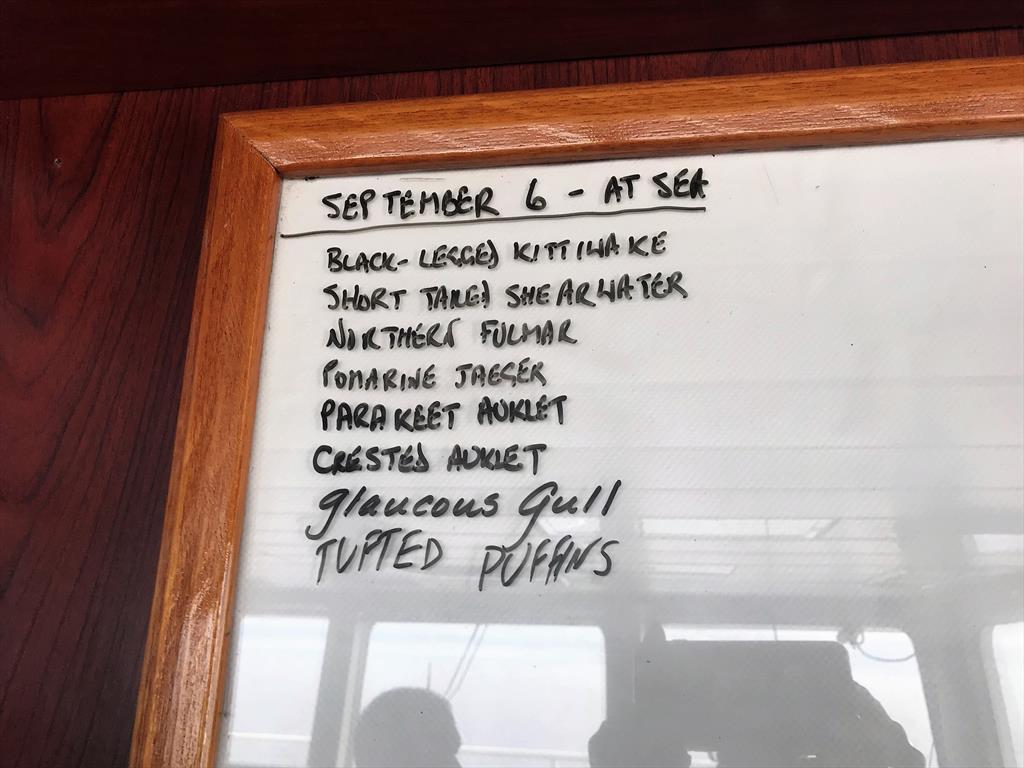 SEPTEMBER 6 - AT SEA
BLACK-LEGGED KITTIWAKE
SHORT TAILED SHEARWATER
NORTHERN FULMAR
POMARINE JAEGER
PARAKEET AUKLET
CRESTED AUKLET
glaucous Gull
TUFTED PUFFINS